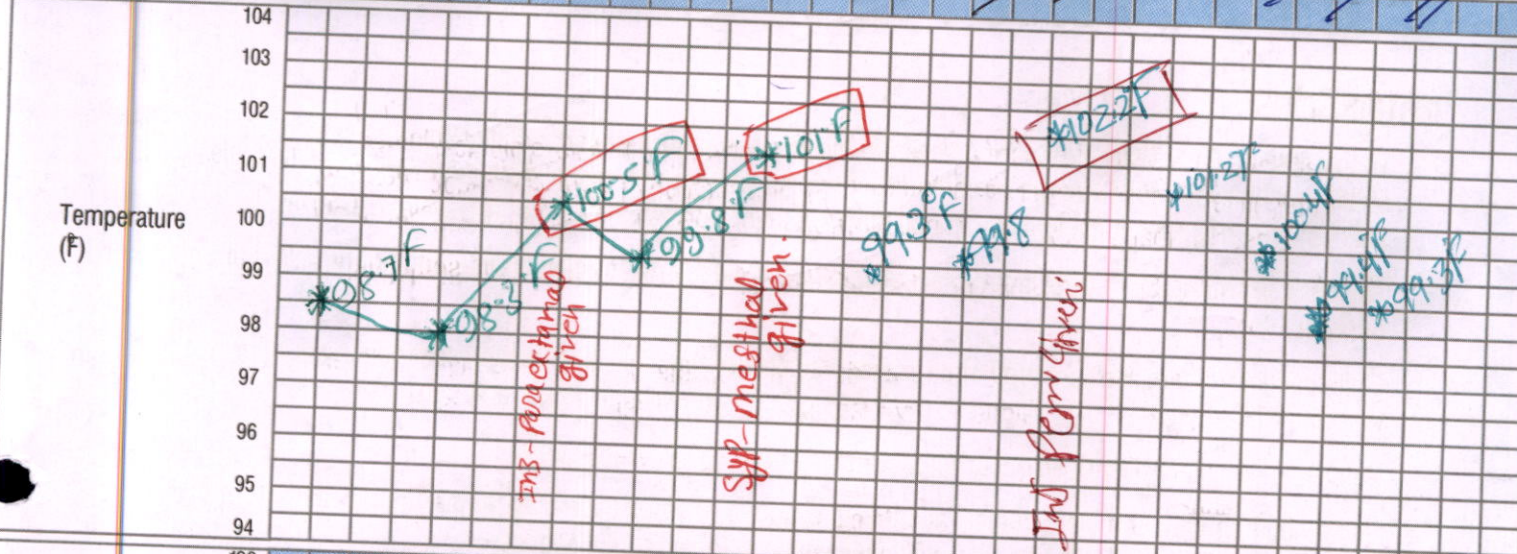 104
103
102
101
100
99
98
97
96
95
94
Temperature
(°F)
98.7°F
98.3°F
100.5°F
99.8°F
101°F
99.3°F
99.8
102.2°F
101.2°F
100.4°F
99.4°F
99.3°F
given
Syp-mesthal
given.